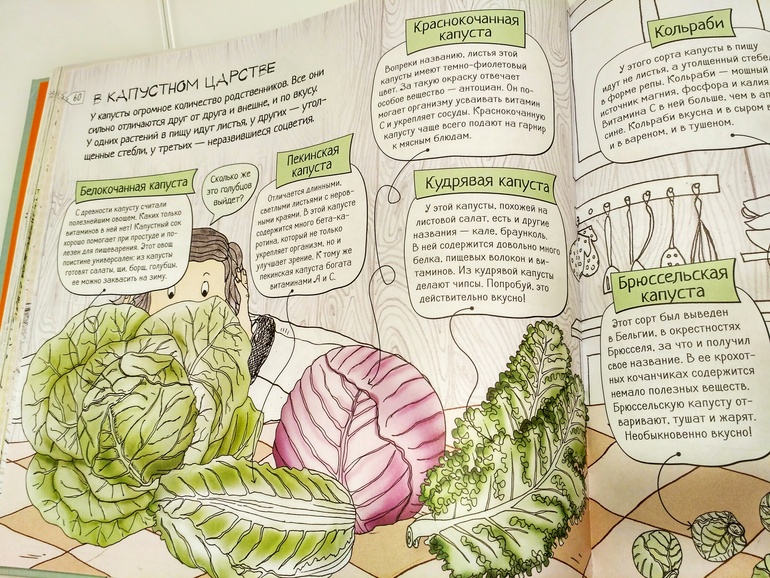 60
В КАПУСТНОМ ЦАРСТВЕ
У капусты огромное количество родственников. Все они
сильно отличаются друг от друга и внешне, и по вкусу.
У одних растений в пищу идут листья, у других — утол-
щенные стебли, у третьих — неразвившиеся соцветия.
Белокочанная капуста
С древности капусту считали
полезнейшим овощем. Каких только
витаминов в ней нет! Капустный сок
хорошо помогает при простуде и по-
лезен для пищеварения. Этот овощ
поистине универсален: из капусты
готовят салаты, щи, борщ, голубцы,
ее можно заквасить на зиму.
Сколько же
это голубцов
выйдет?
Пекинская
капуста
Отличается длинными,
светлыми листьями с неров-
ными краями. В этой капусте
содержится много бета-ка-
ротина, который не только
укрепляет организм, но и
улучшает зрение. К тому же
пекинская капуста богата
витаминами А и С.
Краснокочанная
капуста
Вопреки названию, листья этой
капусты имеют темно-фиолетовый
цвет. За такую окраску отвечает
особое вещество — антоциан. Он по-
могает организму усваивать витамин
С и укрепляет сосуды. Краснокочанную
капусту чаще всего подают на гарнир
к мясным блюдам.
Кудрявая капуста
У этой капусты, похожей на
листовой салат, есть и другие
названия — кале, браунколь.
В ней содержится довольно много
белка, пищевых волокон и ви-
таминов. Из кудрявой капусты
делают чипсы. Попробуй, это
действительно вкусно!
Кольраби
У этого сорта капусты в пищу
идут не листья, а утолщенный стебель
в форме репы. Кольраби — мощный
источник магния, фосфора и калия
Витамина С в ней больше, чем в апель-
сине. Кольраби вкусна и в сыром в
и в вареном, и в тушеном.
Брюссельская
капуста
Этот сорт был выведен
в Бельгии, в окрестностях
Брюсселя, за что и получил
свое название. В ее крохот-
ных кочанчиках содержится
немало полезных веществ.
Брюссельскую капусту от-
варивают, тушат и жарят.
Необыкновенно вкусно!